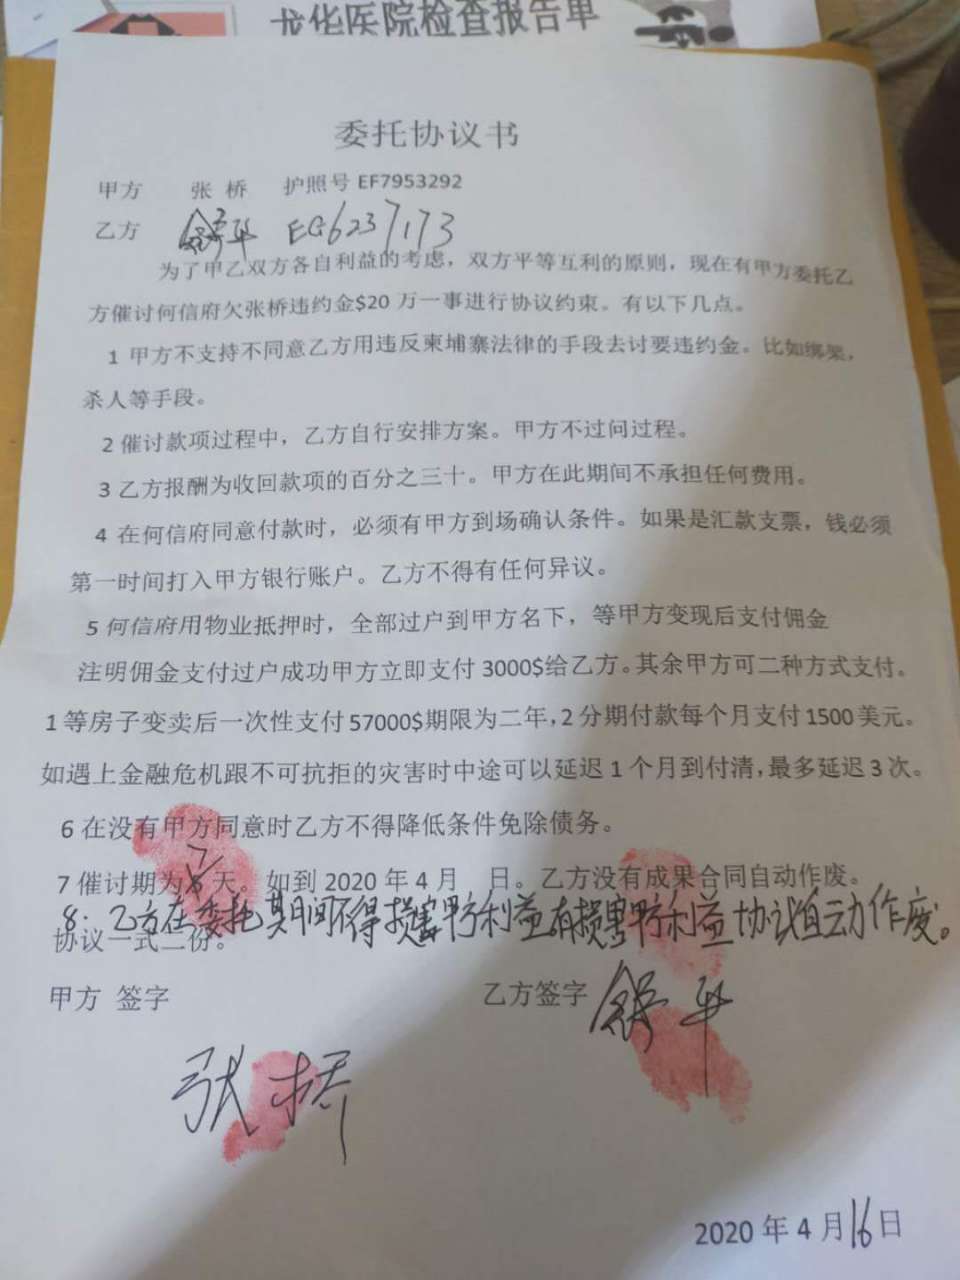 龙华医院检查报告单
委托协议书
甲方 张 桥 护照号 EF7953292
乙方 舒华 EG6237173
为了甲乙双方各自利益的考虑，双方平等互利的原则，现在有甲方委托乙
方催讨何信府欠张桥违约金$20 万一事进行协议约束。有以下几点。
1 甲方不支持不同意乙方用违反柬埔寨法律的手段去讨要违约金。比如绑架，
杀人等手段。
2 催讨款项过程中，乙方自行安排方案。甲方不过问过程。
3 乙方报酬为收回款项的百分之三十。甲方在此期间不承担任何费用。
4 在何信府同意付款时，必须有甲方到场确认条件。如果是汇款支票，钱必须
第一时间打入甲方银行账户。乙方不得有任何异议。
5 何信府用物业抵押时，全部过户到甲方名下，等甲方变现后支付佣金
注明佣金支付过户成功甲方立即支付 3000$给乙方。其余甲方可二种方式支付。
1 等房子变卖后一次性支付 57000$期限为二年，2 分期付款每个月支付 1500 美元。
如遇上金融危机跟不可抗拒的灾害时中途可以延迟 1 个月到付清，最多延迟 3 次。
6 在没有甲方同意时乙方不得降低条件免除债务。
7 催讨期为7天。如到 2020 年 4 月 日。乙方没有成果合同自动作废。
8：乙方在委托期间不得损害甲方利益有损害甲方利益协议自动作废。
协议一式二份。
甲方 签字 乙方签字 舒华
张桥
2020 年 4 月16日